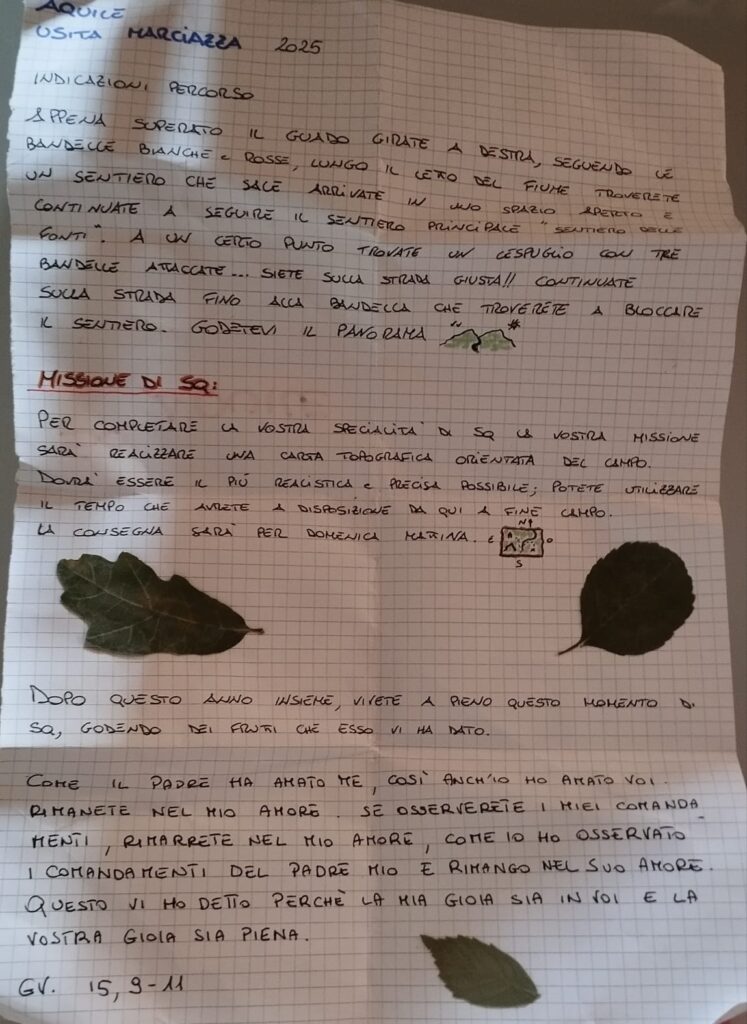 AQUILE
USITA MARCIAZZA 2025
INDICAZIONI PERCORSO
APPENA SUPERATO IL GUADO GIRATE A DESTRA, SEGUENDO LE
BANDELLE BIANCHE e ROSSE, LUNGO IL LETTO DEL FIUME TROVERETE
UN SENTIERO CHE SALE ARRIVATE IN UNO SPAZIO APERTO E
CONTINUATE A SEGUIRE IL SENTIERO PRINCIPALE "SENTIERO DELLE
FONTI". A UN CERTO PUNTO TROVATE UN CESPUGLIO CON TRE
BANDELLE ATTACCATE... SIETE SULLA STRADA GIUSTA!! CONTINUATE
SULLA STRADA FINO ALLA BANDELLA CHE TROVERETE A BLOCCARE
IL SENTIERO. GODETEVI IL PANORAMA
MISSIONE DI SQ:
PER COMPLETARE LA VOSTRA SPECIALITA' DI SQ LA VOSTRA MISSIONE
SARA' REALIZZARE UNA CARTA TOPOGRAFICA ORIENTATA DEL CAMPO.
DOVRA' ESSERE IL PIÚ REALISTICA e PRECISA POSSIBILE; POTETE UTILIZZARE
IL TEMPO CHE AVRETE A DISPOSIZIONE DA QUI A FINE CAMPO.
LA CONSEGNA SARA' PER DOMENICA MATTINA.
N
E O
S
DOPO QUESTO ANNO INSIEME, VIVETE A PIENO QUESTO MOMENTO DI
SQ, GODENDO DEI FRUTTI CHE ESSO VI HA DATO.
COME IL PADRE HA AMATO ME, COSÌ ANCH'IO HO AMATO VOI.
RIMANETE NEL MIO AMORE. SE OSSERVERETE I MIEI COMANDA
MENTI, RIMARRETE NEL MIO AMORE, COME IO HO OSSERVATO
I COMANDAMENTI DEL PADRE MIO E RIMANGO NEL SUO AMORE.
QUESTO VI HO DETTO PERCHÈ LA MIA GIOIA SIA IN VOI E LA
VOSTRA GIOIA SIA PIENA.
GV. 15, 9-11